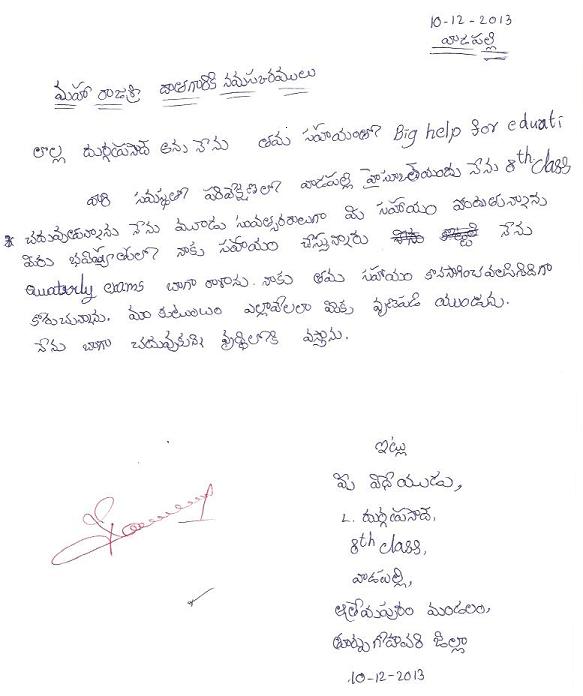 10-12-2013
వాడపల్లి
మహా రాజశ్రీ దాతగారికి నమస్కారములు
లాల్ల దుర్గాప్రసాద్ అను నేను తమ సహాయంతో Big help for educati
వారి సమ్మతి పరివేక్షణలో వాడపల్లి హైస్కూలుయందు నేను 8th class
చదువుతున్నాను నేను మూడు సంవత్సరాలుగా మీ సహాయం పొందుతున్నాను
మీరు భవిష్యత్‌లో నాకు సహాయం చేస్తున్నారు నేను
quaterly exams బాగా రాశాను. నాకు తమ సహాయం కొనసాగించవలసినిదిగా
కోరుచున్నాను. మా కుటుంబం ఎల్లావేలలా మీకు వుణపడి యుండును.
నేను బాగా చదువుకుని వృద్ధిలోకి వస్తాను.
ఇట్లు
మీ విధేయుడు,
L. దుర్గాప్రసాద్,
8th class,
వాడపల్లి,
ఆత్రేయపురం మండలం,
తూర్పుగోదావరి జిల్లా
10-12-2013